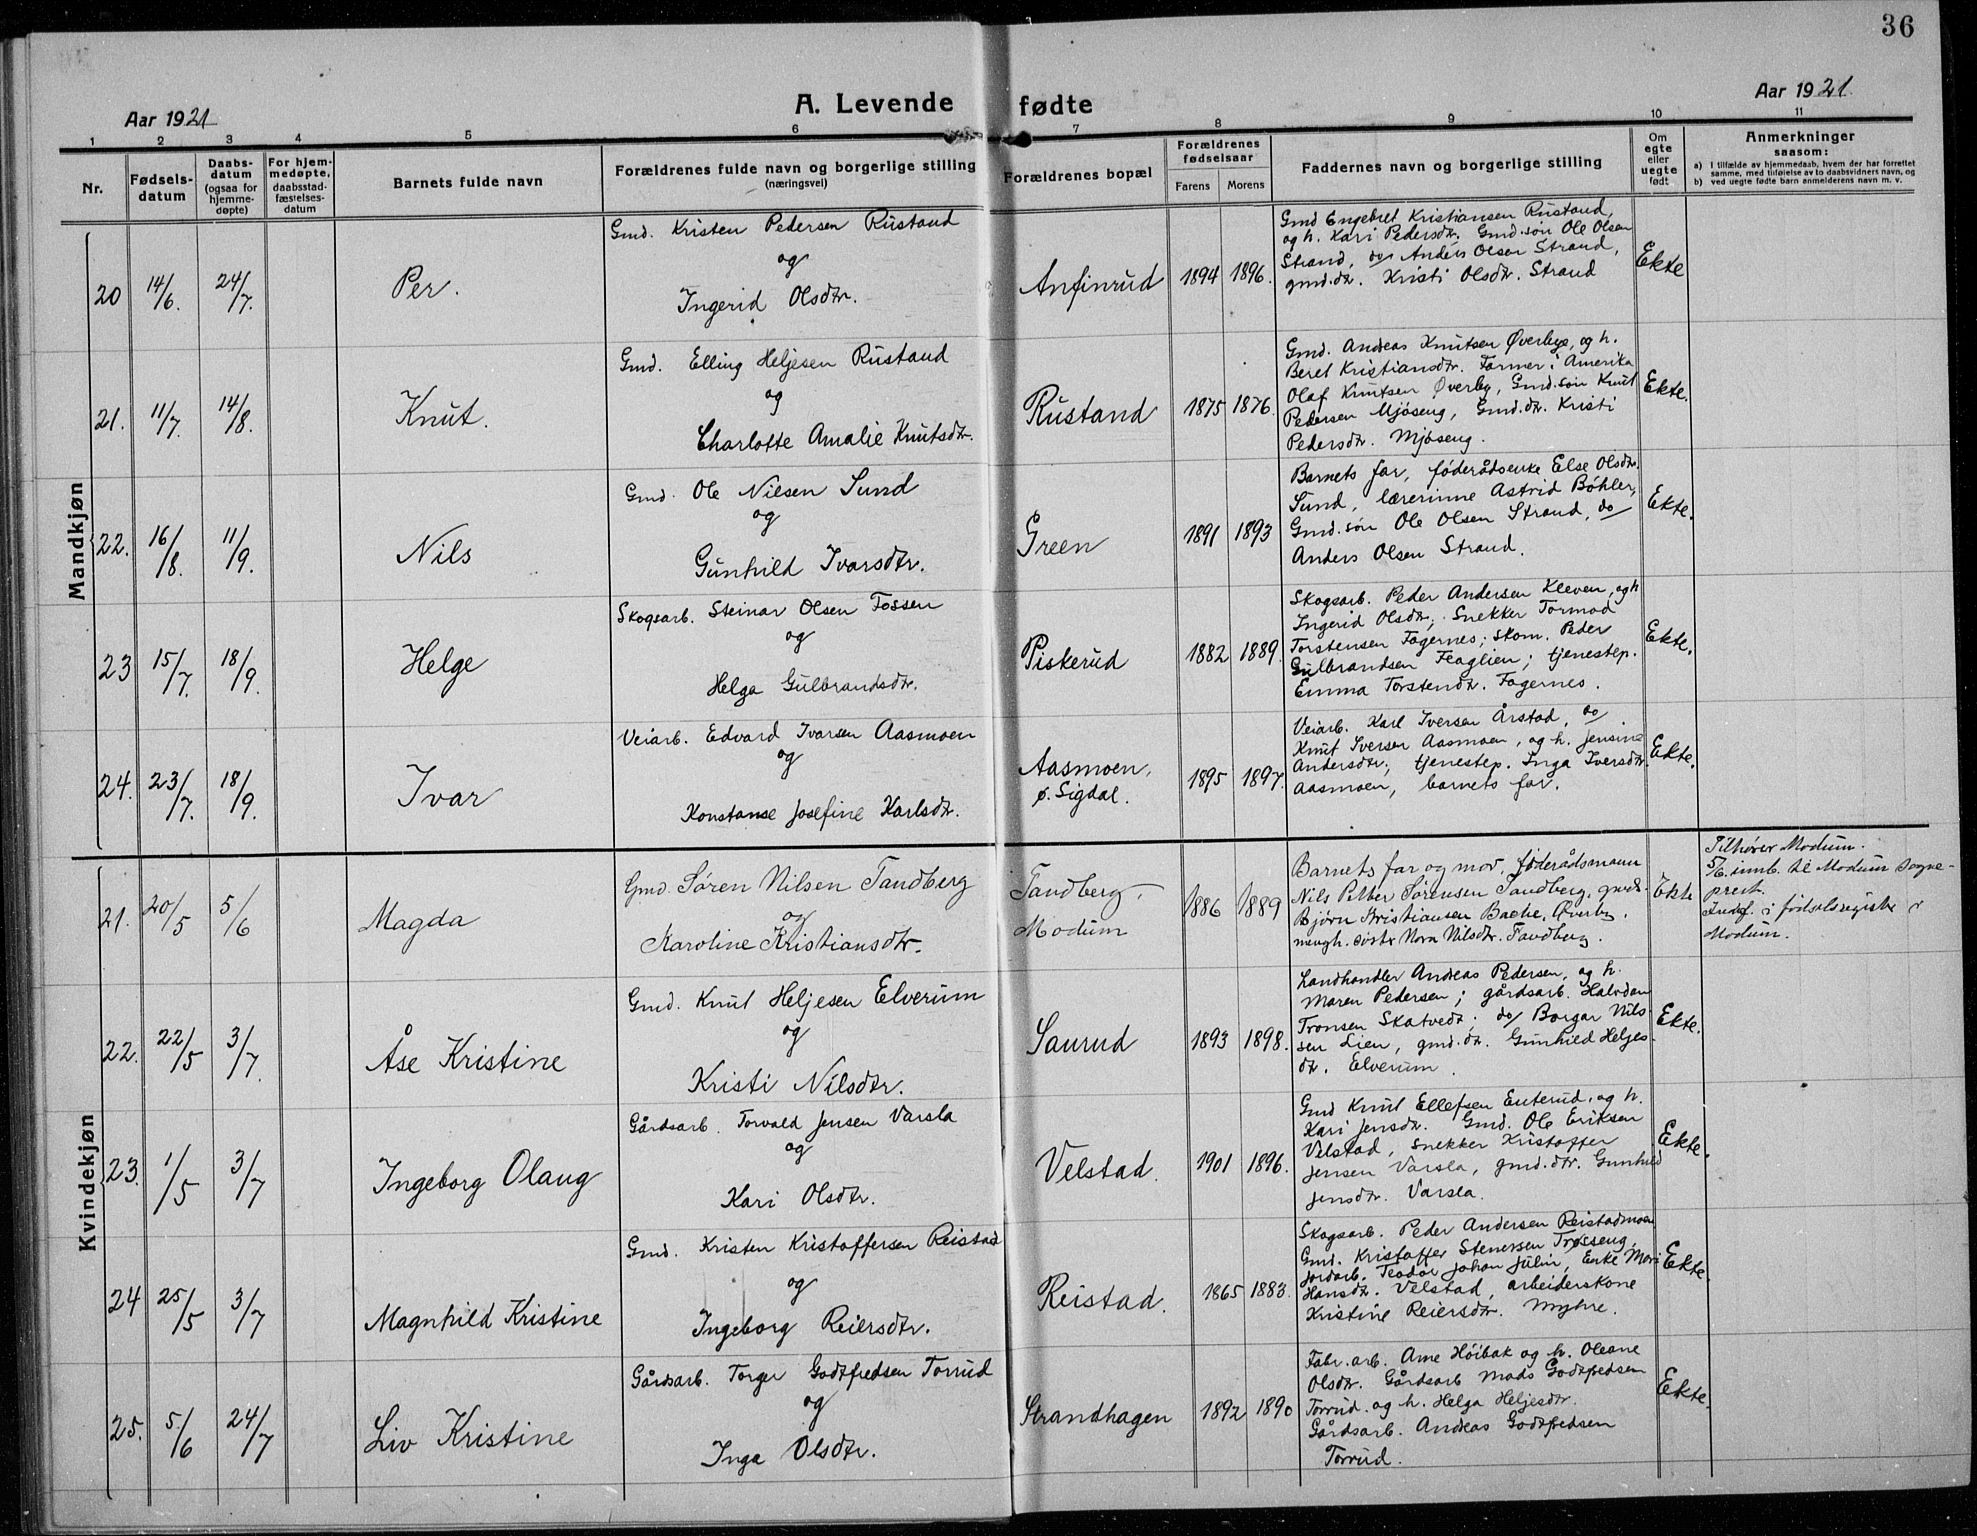 36
A. Levende fødte
Aar 1921
Aar 1921.
1 2 3 4 5 6 7 8 9 10 11
Nr.
Fødsels-
datum
Daabs-
datum
(ogsaa for
hjemme-
døpte)
For hjem-
medøpte,
daabsstad-
fæstelses-
datum
Barnets fulde navn
Forældrenes fulde navn og borgerlige stilling
(næringsvei)
Forældrenes bopæl
Forældrenes
fødselsaar
Farens Morens
Faddernes navn og borgerlige stilling
Om
egte
eller
uegte
født
Anmerkninger
saasom:
a) I tilfælde av hjemmedaab, hvem der har forrettet
samme, med tilføielse av to daabsvidners navn, og
b) ved uegte fødte barn anmelderens navn m. v.
Mandkjøn
20 14/6. 24/7. Per.
Gmd. Kristen Pedersen Rustand
og
Ingerid Olsdtr.
Anfinrud 1894 1896.
Gmd Engebret Kristiansen Rustand,
og h. Kari Pedersdtr. Gmd.søn Ole Olsen
Strand, do/ Anders Olsen Strand,
gmd.dtr. Kristi Olsdtr. Strand
Ekte
21. 11/7. 14/8. Knut.
Gmd. Elling Heljesen Rustand
og
Charlotte Amalie Knutsdtr.
Rustand 1875 1876.
Gmd. Andreas Knutsen Øverbye, og h.
Beret Kristiansdtr. Farmer i Amerika
Olaf Knutsen Øverby, Gmd.søn Knut
Pedersen Mjøseng, Gmd.dtr. Kristi
Pedersdtr. Mjøseng.
Ekte.
22. 16/8. 11/9. Nils
Gmd. Ole Nilsen Sund
og
Gunhild Ivarsdtr.
Green 1891 1893
Barnets far, føderådsenke Else Olsdtr.
Sund, lærerinne Astrid Bøhler,
Gmd.søn Ole Olsen Strand, do/
Anders Olsen Strand.
Ekte.
23 15/7. 18/9. Helge
Skogsarb. Steinar Olsen Fossen
og
Helga Gulbrandsdtr.
Piskerud 1882 1889.
Skogsarb. Peder Andersen Kleven, og h
Ingerid Olsdtr; Snekker Tormod
Torstensen Fagernes; Skom. Peder
Gulbrandsen Feaglien; tjenestep.
Emma Torstendtr. Fagernes.
Ekte.
24. 23/7. 18/9. Ivar
Veiarb. Edvard Ivarsen Aasmoen
og
Konstanse Josefine Karlsdtr.
Aasmoen,
ø. Sigdal.
1895 1897.
Veiarb. Karl Iversen Årstad, do/.
Knut Iversen Aasmoen, og h. Jensine
Andersdtr.; tjenestep. Inga Iversdtr.
Aasmoen, barnets far.
Ekte.
Kvindekjøn
21. 20/5 5/6 Magda
Gmd. Søren Nilsen Tandberg
og
Karoline Kristiansdtr.
Tandberg,
Modum
1886 1889
Barnets far og mor, føderådsmann
Nils Petter Sørensen Tandberg, gmds.
Bjørn Kristiansen Øverby.
søster Nora Nilsdtr. Tandberg.
Ekte
Tilhører Modum.
5/6. innb. til Modum sogne-
prest.
Indf. i fødselsregister
Modum.
22. 22/5 3/7. Åse Kristine
Gmd. Knut Heljesen Elverum
og
Kristi Nilsdtr.
Saurud 1893 1898.
Landhandler Andreas Pedersen, og h.
Maren Pedersen; gårdsarb. Halvdan
Tronsen Skatvedt; do/ Borgar Nils-
sen Lien, gmd.dtr. Gunhild Heljes-
dtr. Elverum.
Ekte.
23. 1/5 3/7 Ingeborg Olaug
Gårdsarb. Torvald Jensen Varsla
og
Kari Olsdtr.
Velstad. 1901 1896.
Gmd Knut Ellefsen Enterud, og h.
Kari Jensdtr. Gmd. Ole Eriksen
Velstad, Snekker Kristoffer
Jensen Varsla, gmd.dtr. Gunhild
Jensdtr. Varsla.
Ekte.
24 25/5 3/7 Magnhild Kristine
Gmd. Kristen Kristoffersen Reistad
og
Ingeborg Reiersdtr.
Reistad. 1865 1883.
Skogsarb. Peder Andersen Reistadmoen
Gmd. Kristoffer Stenersen Trøsseng,
Jordarb. Teodor Johan Julin, Enke Mari
Hansdtr. Velstad, arbeiderskone
Kristine Reiersdtr. Myhre.
Ekte.
25. 5/6 24/7 Liv Kristine
Gårdsarb. Torger Godtfredsen Torrud
og
Inga Olsdtr.
Strandhagen 1892 1890
Fabr.arb. Arne Høibak og h. Oleane
Olsdtr. Gårdsarb Mads Godtfredsen
Torrud. og h. Helga Heljesdtr.
Gårdsarb. Andreas Godtfredsen
Torrud.
Ekte.